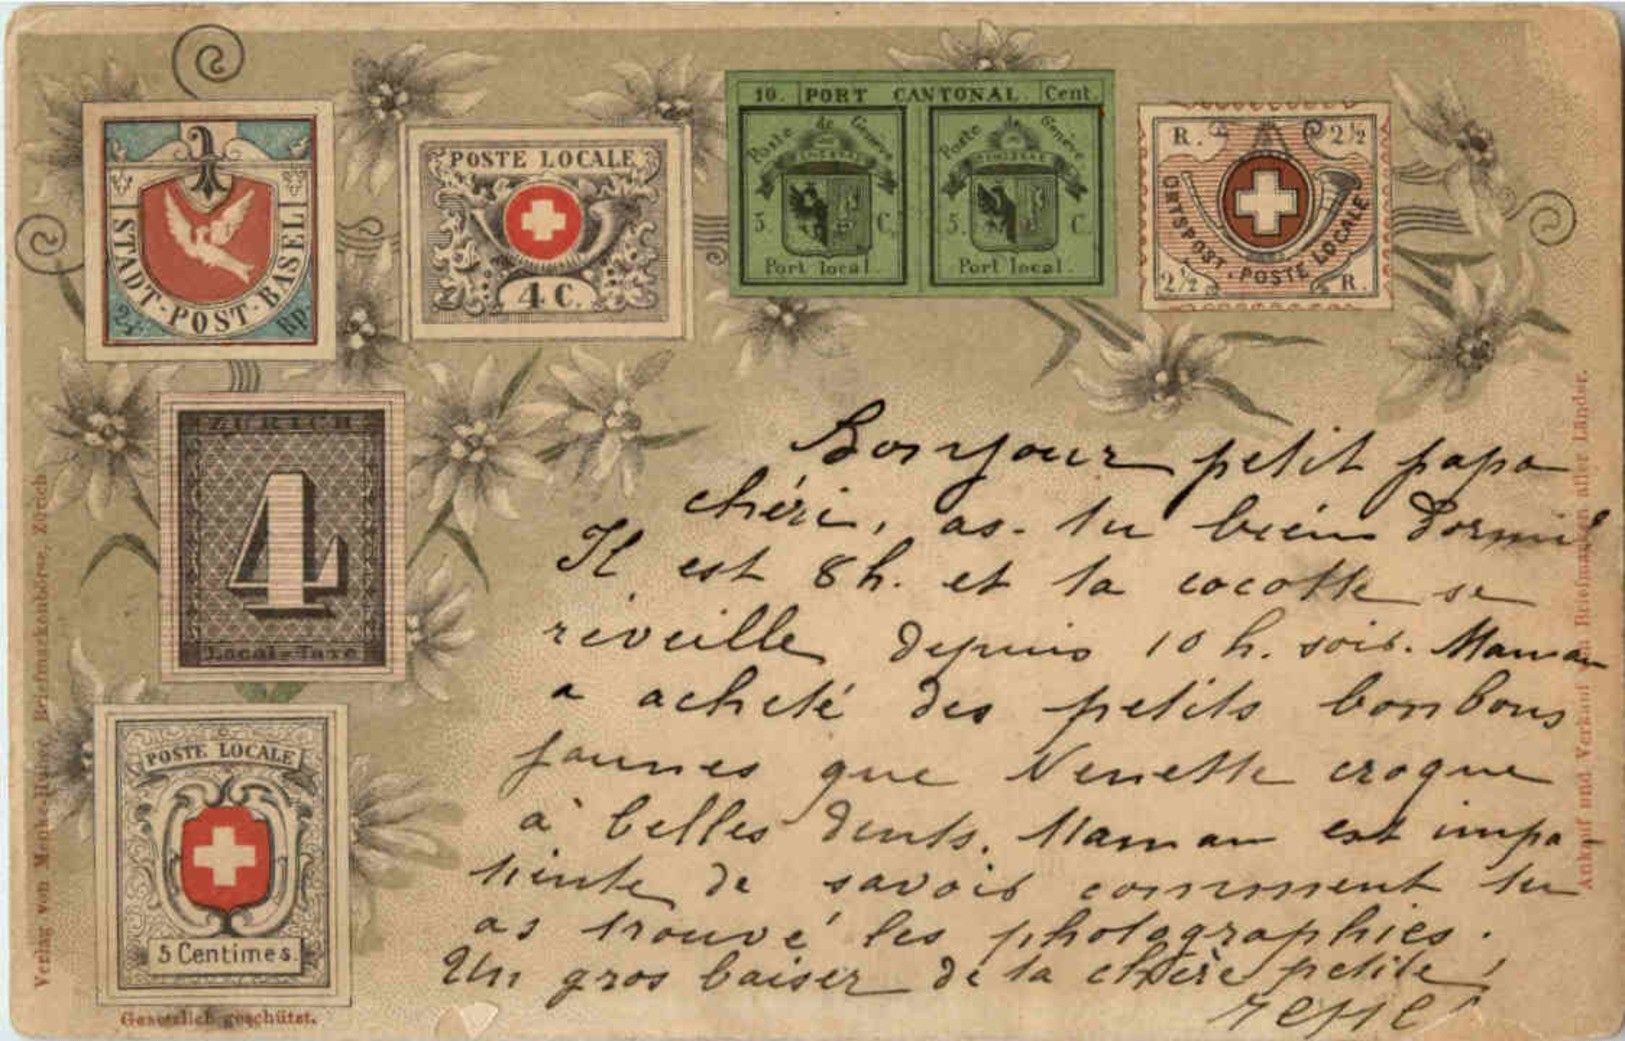 STADT-POST-BASEL
2½ Rp.
POSTE LOCALE
4 C.
10. PORT CANTONAL. Cent
Poste de Genève
5. C.
Port local.
Poste de Genève
5. C.
Port local.
R. 2½
ORTSPOST. POSTE LOCALE
2½ R.
ZURICH
4
Local-Taxe
POSTE LOCALE
5 Centimes.
Gesetzlich geschützt.
Verlag von Briefmarkenbörse, Zürich
Ankauf und Verkauf von Briefmarken aller Länder.
Bonjour petit papa
chéri, as-tu bien dormi
Il est 8h. et ta cocotte se
réveille depuis 10 h. soir. Maman
a acheté des petits bonbons
jaunes que Nenette croque
à belles dents. Maman est impa
tiente de savoir comment tu
as trouvé les photographies.
Un gros baiser de ta chère petite